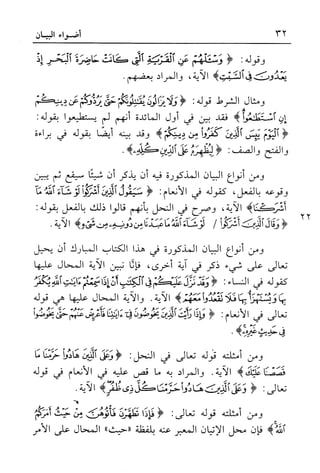 ٣٢ أضواء البيان
وقوله: ﴿وَسْـَٔلْهُمْ عَنِ ٱلْقَرْيَةِ ٱلَّتِي كَانَتْ حَاضِرَةَ ٱلْبَحْرِ إِذْ
يَعْدُونَ فِي ٱلسَّبْتِ﴾ الآية، والمراد بعضهم.
ومثال الشرط قوله: ﴿وَلَا يَزَالُونَ يُقَٰتِلُونَكُمْ حَتَّىٰ يَرُدُّوكُمْ عَن دِينِكُمْ
إِنِ ٱسْتَطَٰعُواْ﴾ فقد بين في أول المائدة أنهم لم يستطيعوا بقوله:
﴿ٱلْيَوْمَ يَئِسَ ٱلَّذِينَ كَفَرُواْ مِن دِينِكُمْ﴾ وقد بينه أيضًا بقوله في براءة
والفتح والصف: ﴿لِيُظْهِرَهُۥ عَلَى ٱلدِّينِ كُلِّهِۦ﴾.
ومن أنواع البيان المذكورة فيه أن يذكر أن شيئًا سيقع ثم يبين
وقوعه بالفعل، كقوله في الأنعام: ﴿سَيَقُولُ ٱلَّذِينَ أَشْرَكُواْ لَوْ شَآءَ ٱللَّهُ مَآ
أَشْرَكْنَا﴾ الآية، وصرح في النحل بأنهم قالوا ذلك بالفعل بقوله:
﴿وَقَالَ ٱلَّذِينَ أَشْرَكُواْ / لَوْ شَآءَ ٱللَّهُ مَا عَبَدْنَا مِن دُونِهِۦ مِن شَىْءٍ﴾ الآية.
٢٢
ومن أنواع البيان المذكورة في هذا الكتاب المبارك أن يحيل
تعالى على شيء ذكر في آية أخرى، فإنَّا نبين الآية المحال عليها
كقوله في النساء: ﴿وَقَدْ نَزَّلَ عَلَيْكُمْ فِي ٱلْكِتَٰبِ أَنْ إِذَا سَمِعْتُمْ ءَايَٰتِ ٱللَّهِ يُكْفَرُ
بِهَا وَيُسْتَهْزَأُ بِهَا فَلَا تَقْعُدُواْ مَعَهُمْ﴾ الآية. والآية المحال عليها هي قوله
تعالى في الأنعام: ﴿وَإِذَا رَأَيْتَ ٱلَّذِينَ يَخُوضُونَ فِيٓ ءَايَٰتِنَا فَأَعْرِضْ عَنْهُمْ حَتَّىٰ يَخُوضُواْ
فِي حَدِيثٍ غَيْرِهِۦ﴾.
ومن أمثلته قوله تعالى في النحل: ﴿وَعَلَى ٱلَّذِينَ هَادُواْ حَرَّمْنَا مَا
قَصَصْنَا عَلَيْكَ﴾ الآية. والمراد به ما قص عليه في الأنعام في قوله
تعالى: ﴿وَعَلَى ٱلَّذِينَ هَادُواْ حَرَّمْنَا كُلَّ ذِي ظُفُرٍ﴾ الآية.
ومن أمثلته قوله تعالى: ﴿فَإِذَا تَطَهَّرْنَ فَأْتُوهُنَّ مِنْ حَيْثُ أَمَرَكُمُ
ٱللَّهُ﴾ فإن محل الإتيان المعبر عنه بلفظة «حيث» المحال على الأمر